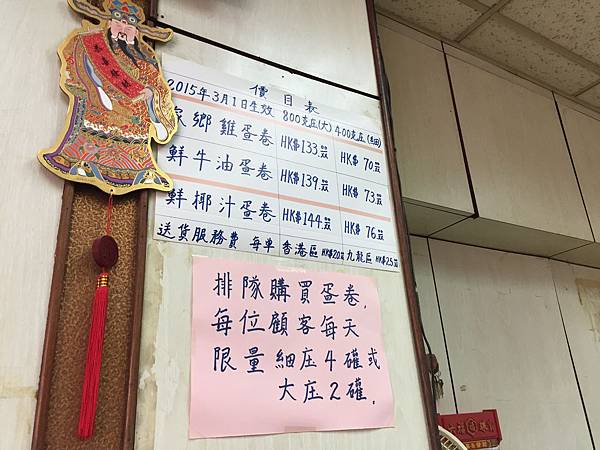 價目表
2015年3月1日生效 800克庄(大) 400克庄(細)
家鄉雞蛋卷 HK$133.00 HK$70.00
鮮牛油蛋卷 HK$139.00 HK$73.00
鮮椰汁蛋卷 HK$144.00 HK$76.00
送貨服務費 每車 香港區 HK$20.00 九龍區 HK$25.00
排隊購買蛋卷,
每位顧客每天
限量細庄4罐或
大庄2罐.